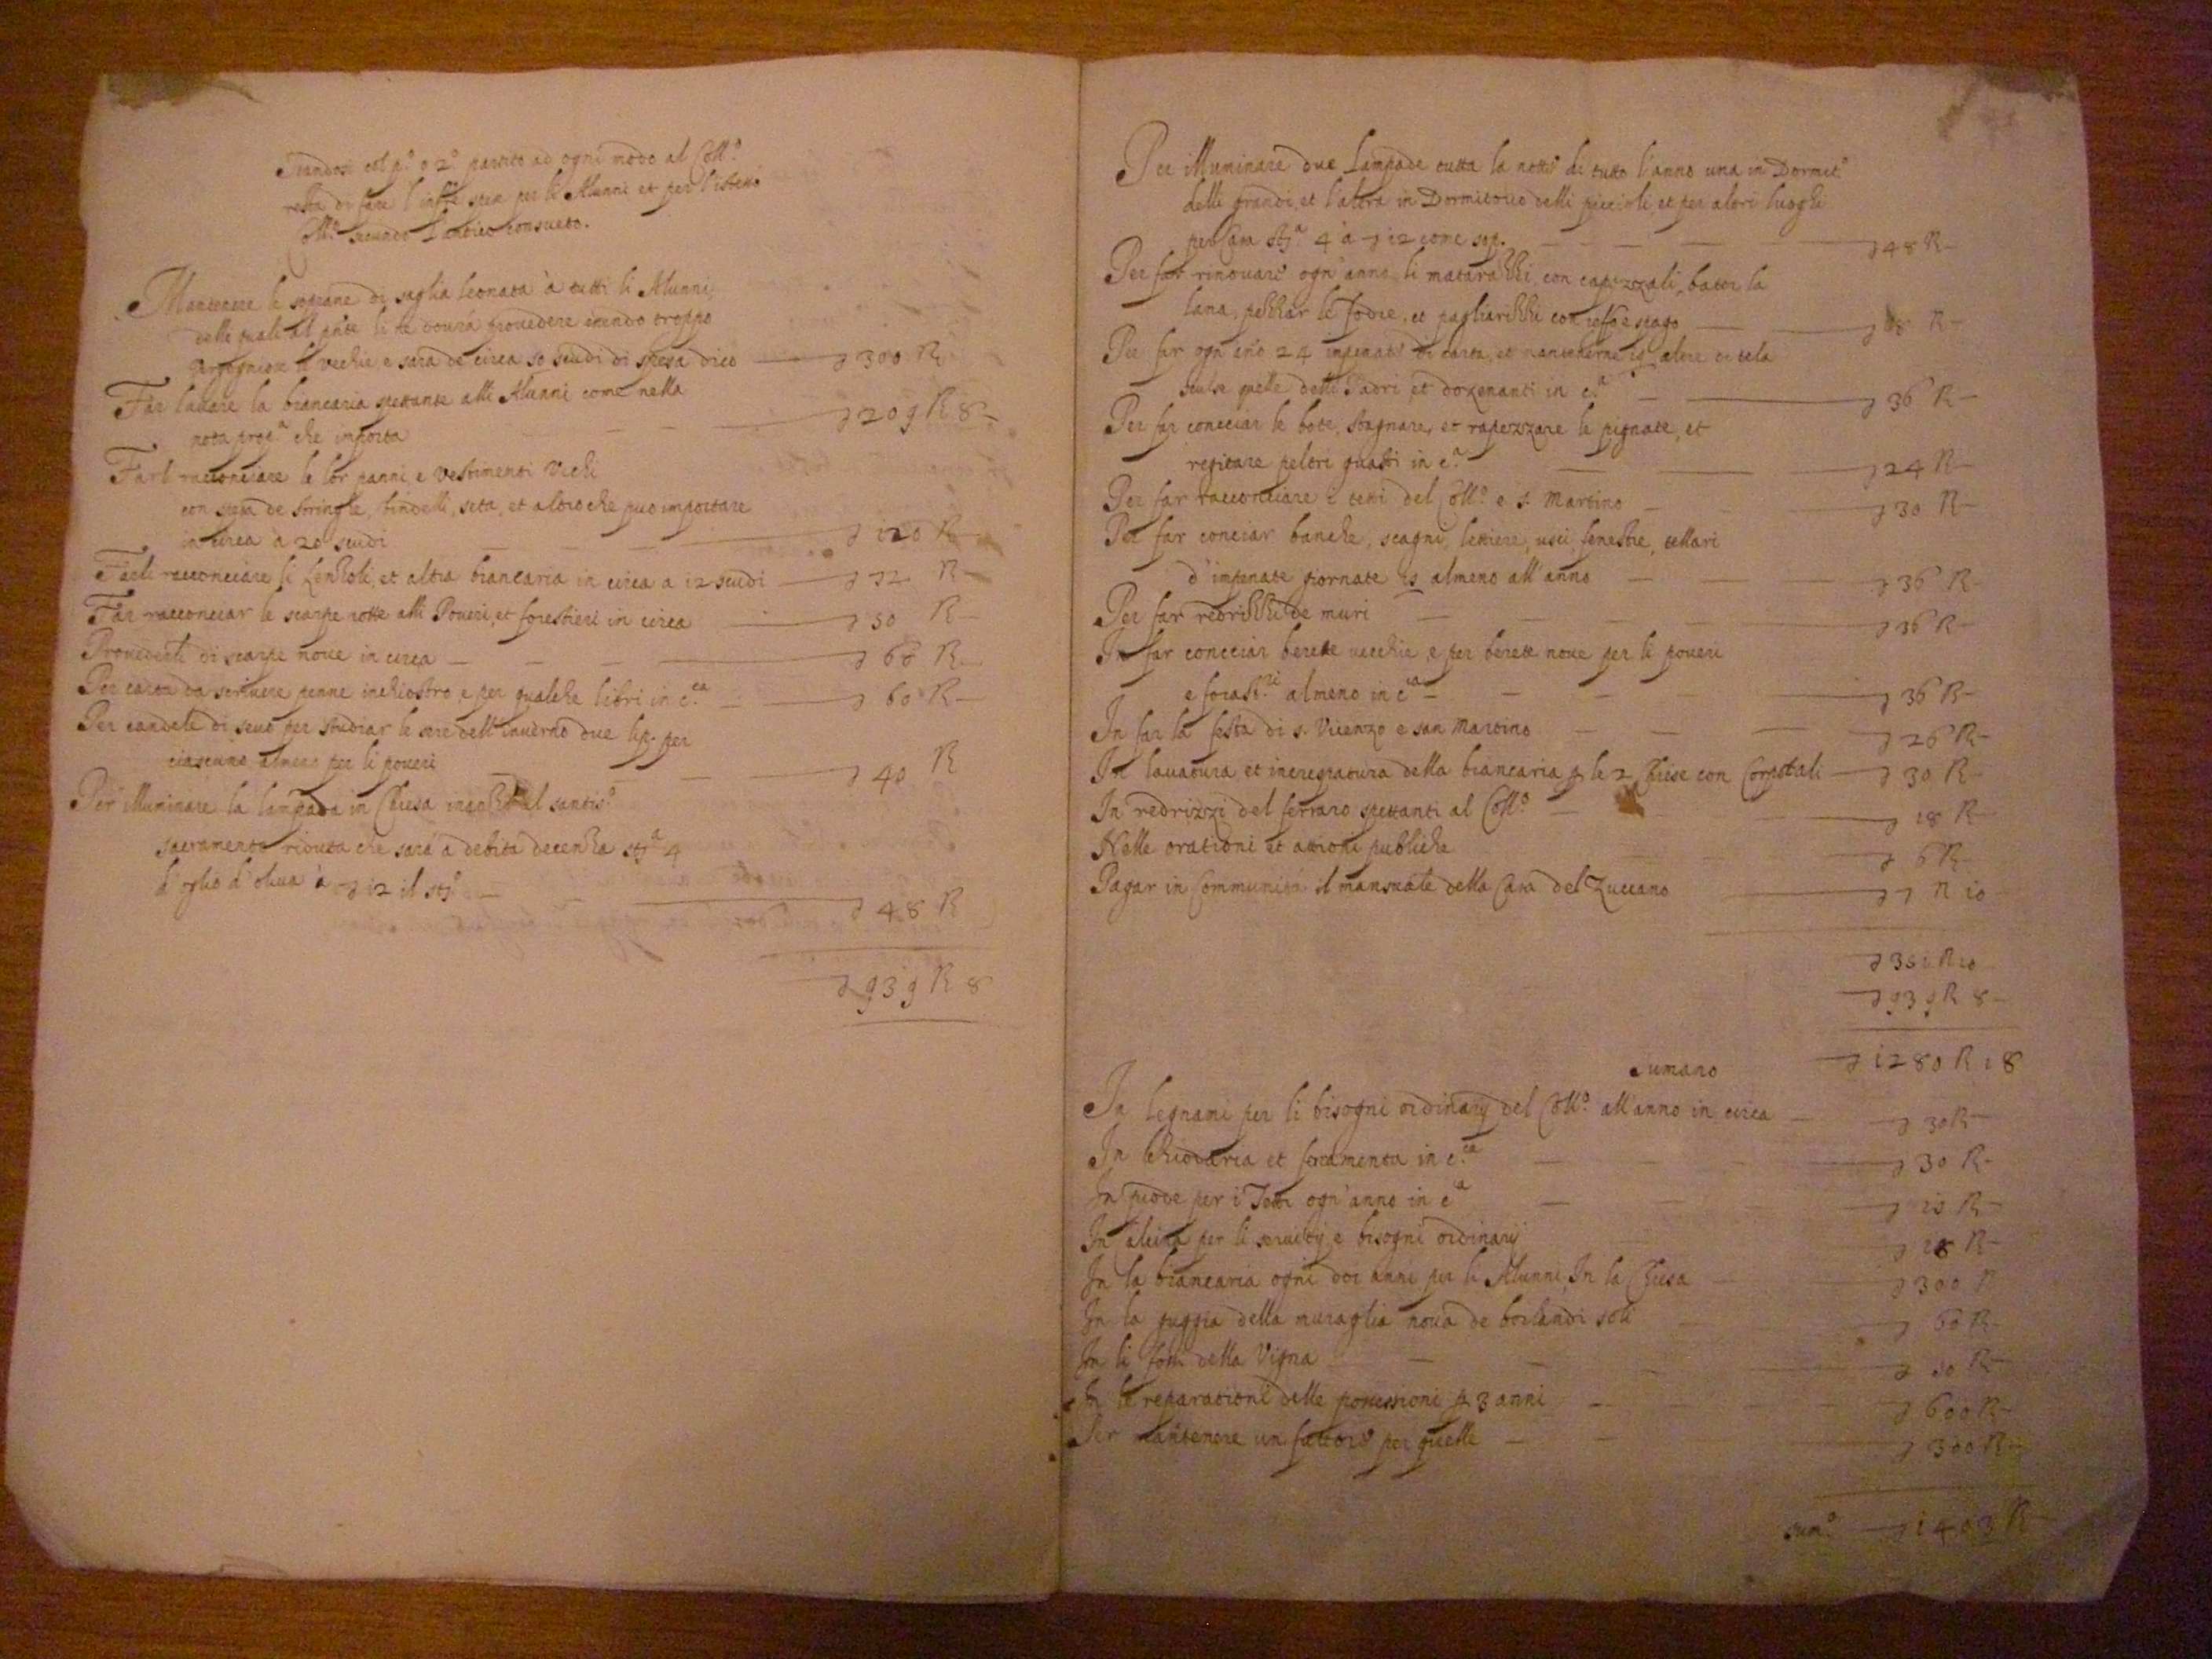 col p.º o 2º partito ad ogni modo al Coll.º
resta di fare l'inf.te per li Alunni et per l'istesso
Coll.º secundo l'antico consueto.
Mantenere le soprane di saglia leonata à tutti li Alunni,
delle quali al pñte li se dourà prouedere essendo troppo
le vechie, e sarà de circa 50 scudi di spesa dico 300 R
Far lauare la biancaria spettante alli Alunni come nella
nota prop.a che importa 209 R 8
Farli racconciare le lor panni, e vestimenti vechi
con spesa de stringhe, bindelli, seta, et altro che può importare
in circa à 20 scudi 120 R
Farli racconciare li lenzoli, et altra biancaria in circa a 12 scudi 72 R
Far racconciar le scarpe rotte alli Poueri, et forestieri in circa 30 R
Prouederli di scarpe noue in circa 60 R
Per carta da scriuere penne inchiostro, e per qualche libri in c.ca 60 R
Per candele di seuo per studiar le sere dell'inuerno due lip. per
ciascuno almeno per li poueri 40 R
Per illuminare la lampada in Chiesa inanzi al santis.º
sacramento riduta che sarà a debita decenza stª 4
d'oglio d'oliua à 12 il stº 48 R
939 R 8
Per illuminare due Lampade tutta la notte di tutto l'anno una in Dormit.º
delli grandi, et l'altra in Dormitorio delli piccioli, et per altri luoghi
per Casa stª 4 à 12 come sop. 48 R
Per far rinouare ogn'anno li matarazzi, con capezzali, bater la
lana, pezzar le fodre, et pagliarizzi con reffo e spago R
Per far ogn'año 24 impenate di carta, et mantenerne 15 altre di tela
quelle delli Padri et dozenanti in c.ª 36 R
Per far conciar le bote, stagnare, et rapezzare le pignate, et
regitare peltri guasti in c.ª 24 R
Per far racconciare i tetti del Coll.º e S. Martino 30 R
Per far conciar banche, scagni, lettiere, usci, fenestre, tellari
d'impenate giornate 15 almeno all'anno 36 R
Per far redrizzi de muri 36 R
In far conciar berette vecchie, e per berette noue per li poueri
e forast.ri almeno in c.ª 36 R
In far la festa di S. Vicenzo e san Martino 26 R
In lauatura et increspatura della biancaria p le 2 Chiese con Corporali 30 R
In redrizzi del ferraro spettanti al Coll.º 18 R
Nelle orationi et attioni publiche 6 R
Pagar in Communità il mansuale della Casa del Zuccano 7 R 10
R 10
939 R 8
Sumano 1280 R 18
In legnami per li bisogni ordinarij del Coll.º all'anno in circa 30 R
In chiodaria et feramenta in c.ca 30 R
In piode per i Tetti ogn'anno in c.ª R
In calcina per li seruitij, e bisogni ordinarij 18 R
In la biancaria ogni doi anni per li Alunni, In la Chiesa 300 R
In la guggia della muraglia noua de soli 60 R
In li fossi della Vigna R
In le reparationi delle possessioni p 3 anni 600 R
Per mantenere un fattore per quelle 300 R
sum.º 1403 R